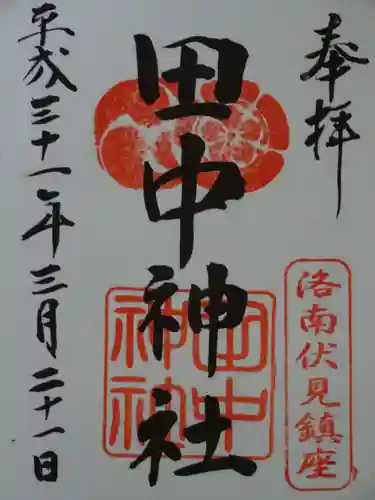 奉拝
洛南伏見鎮座
田中神社
田中神社
平成三十一年三月二十一日